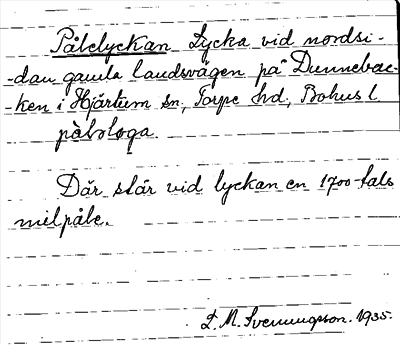 Pålelyckan Lycka vid nordsi-
-dan gamla landsvägen på Dunnebac-
-ken i Hjärtum sn, Torpe hd, Bohus l.
pålslaga.
Där står vid lyckan en 1700-tals
milpåle.
L. M. Svenungsson. 1935.